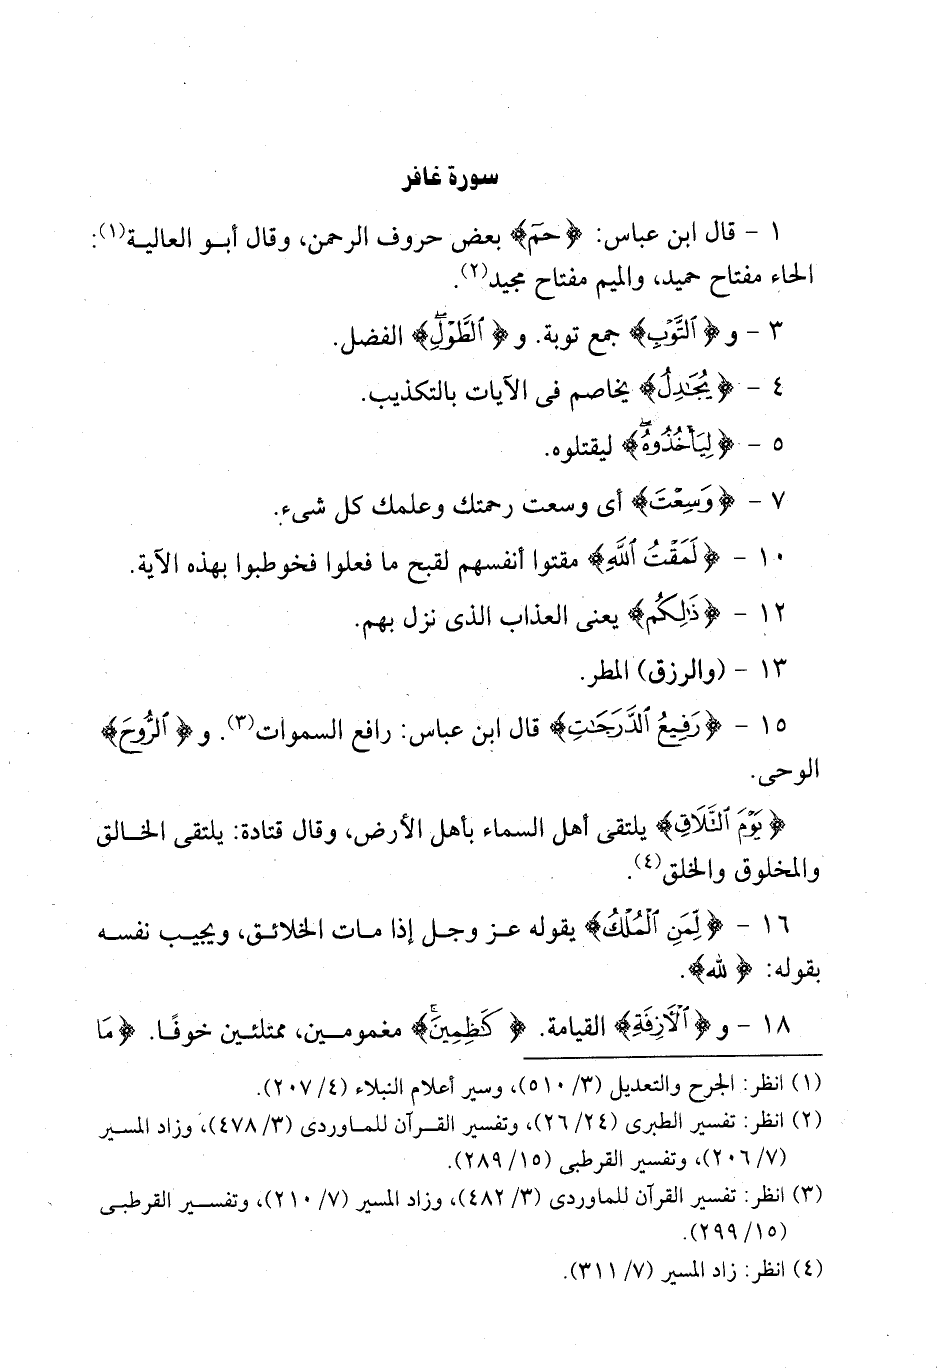 سورة غافر
١ - قال ابن عباس: ﴿حمٓ﴾ بعض حروف الرحمن، وقال أبو العالية(١):
الحاء مفتاح حميد، والميم مفتاح مجيد(٢).
٣ - و ﴿ٱلتَّوۡبِ﴾ جمع توبة. و ﴿ٱلطَّوۡلِۖ﴾ الفضل.
٤ - ﴿يُجَٰدِلُ﴾ يخاصم فى الآيات بالتكذيب.
٥ - ﴿لِيَأۡخُذُوهُۖ﴾ ليقتلوه.
٧ - ﴿وَسِعۡتَ﴾ أى وسعت رحمتك وعلمك كل شىء.
١٠ - ﴿لَمَقۡتُ ٱللَّهِ﴾ مقتوا أنفسهم لقبح ما فعلوا فخوطبوا بهذه الآية.
١٢ - ﴿ذَٰلِكُم﴾ يعنى العذاب الذى نزل بهم.
١٣ - (والرزق) المطر.
١٥ - ﴿رَفِيعُ ٱلدَّرَجَٰتِ﴾ قال ابن عباس: رافع السموات(٣). و ﴿ٱلرُّوحَ﴾
الوحى.
﴿يَوۡمَ ٱلتَّلَاقِ﴾ يلتقى أهل السماء بأهل الأرض، وقال قتادة: يلتقى الخالق
والمخلوق والخلق(٤).
١٦ - ﴿لِّمَنِ ٱلۡمُلۡكُ﴾ يقوله عز وجل إذا مات الخلائق، ويجيب نفسه
بقوله: ﴿لله﴾.
١٨ - و ﴿ٱلۡأٓزِفَةِ﴾ القيامة. ﴿كَٰظِمِينَۚ﴾ مغمومين، ممتلئين خوفًا. ﴿مَا
(١) انظر: الجرح والتعديل (٣/ ٥١٠)، وسير أعلام النبلاء (٤/ ٢٠٧).
(٢) انظر: تفسير الطبرى (٢٤/ ٢٦)، وتفسير القرآن للماوردى (٣/ ٤٧٨)، وزاد المسير
(٧/ ٢٠٦)، وتفسير القرطبى (١٥/ ٢٨٩).
(٣) انظر: تفسير القرآن للماوردى (٣/ ٤٨٢)، وزاد المسير (٧/ ٢١٠)، وتفسير القرطبى
(١٥/ ٢٩٩).
(٤) انظر: زاد المسير (٧/ ٣١١).